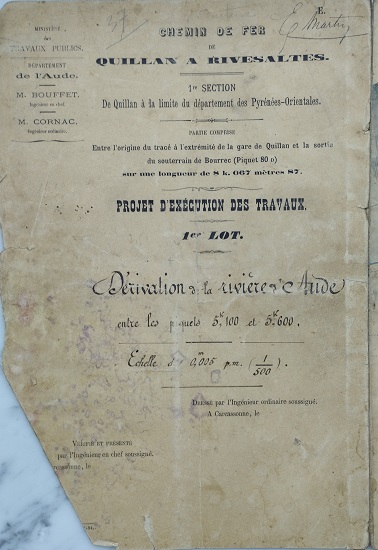 MINISTÈRE
des
TRAVAUX PUBLICS.
DÉPARTEMENT
de l'Aude.
M. BOUFFET,
Ingénieur en chef.
M. CORNAC,
Ingénieur ordinaire.
E.
E. Martin
CHEMIN DE FER
DE
QUILLAN A RIVESALTES.
1re SECTION
De Quillan à la limite du département des Pyrénées-Orientales.
PARTIE COMPRISE
Entre l'origine du tracé à l'extrémité de la gare de Quillan et la sortie
du souterrain de Bourrec (Piquet 80 D)
sur une longueur de 8 k. 067 mètres 87.
PROJET D'EXÉCUTION DES TRAVAUX.
1er LOT.
Dérivation de la rivière d'Aude
entre les piquets 5k,100 et 5k,600.
Echelle de 0m,005 p.m. (1/500).
DRESSÉ par l'Ingénieur ordinaire soussigné.
A Carcassonne, le
VÉRIFIÉ ET PRÉSENTÉ
par l'Ingénieur en chef soussigné.
le